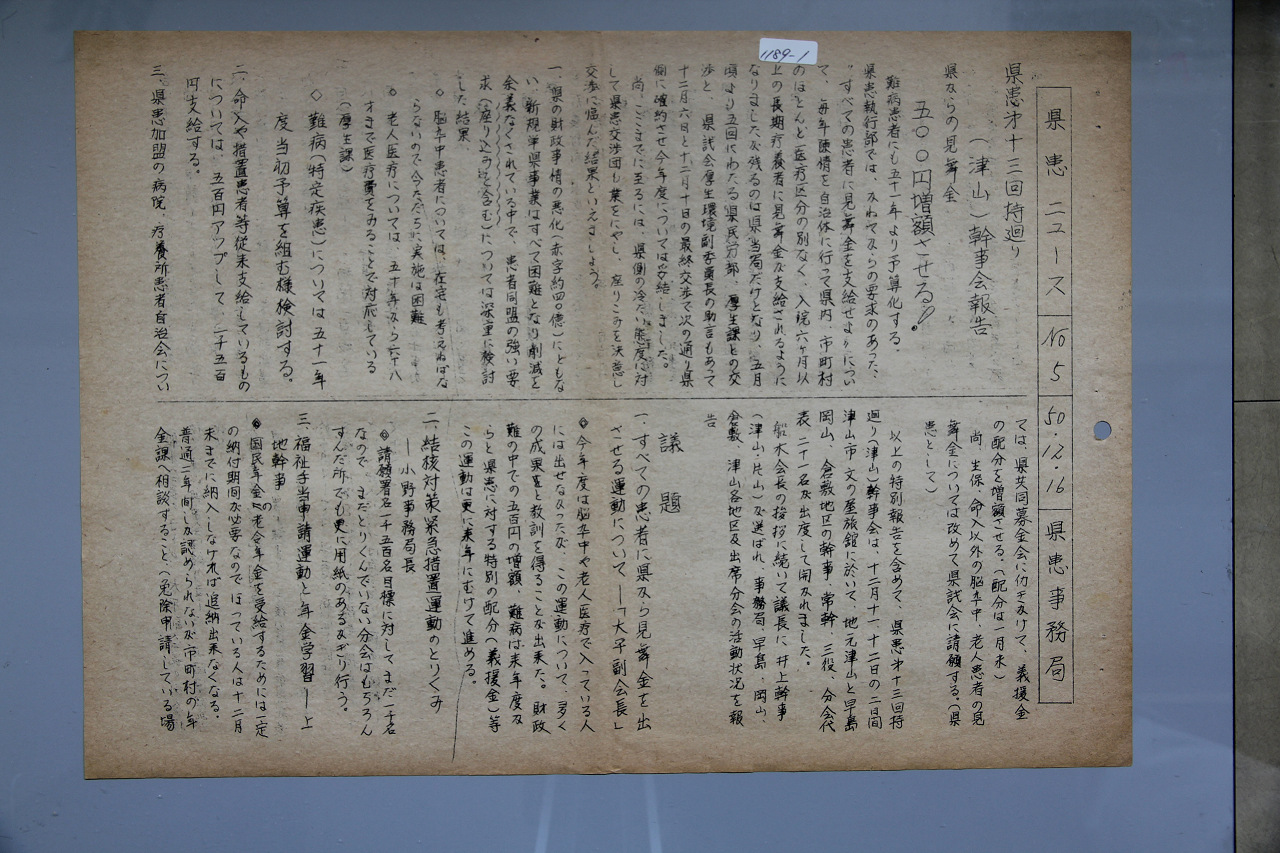 1189-1
県患ニュース No 5 50.12.16 県患事務局
県患才十三回持廻り
(津山)幹事会報告
県からの見舞金
五〇〇円増額させる!
難病患者にも五十一年より予算化する。
県患執行部では、かねてからの要求のあった、
"すべての患者に見舞金を支給せよ"につい
て、毎年陳情を自治体に行って県内、市町村
のほとんど医療区分の別なく、入院六ヶ月以
上の長期療養者に見舞金が支給されるように
なりましたが残るのは県当局だけとなり、五月
頃より五回にわたる県民労部、厚生課との交
渉と、県議会厚生環境副委員長の助言もあって
十二月六日と十二月十日の最終交渉で次の通り県
側に確約させ今年度については妥結しました。
尚、ここまでに至るには、県側の冷たい態度に対
して県患交渉団も業をにやし、座りこみを決意し
交渉に臨んだ結果といえましょう。
一、県の財政事情の悪化(赤字約四〇億)にともな
い、新規単県事業はすべて困難となり削減を
余義なくされている中で、患者同盟の強い要
求(座り込みも含む)については深重に検討
した結果、
◇ 脳卒中患者については、在宅も考えねばな
らないので今ただちに実施は困難
◇ 老人医療については、五十年から六十八
才まで医療費をみることで対応している
(厚生課)
◇ 難病(特定疾患)については五十一年
度当初予算を組む様検討する。
二、命入や措置患者等従来支給しているもの
については、五百円アップして、二千五百
円支給する。
三、県患加盟の病院、療養所患者自治会につい
ては県共同募金会に仂きかけて、義援金
の配分を増額させる。(配分は一月末)
尚、生保、命入以外の脳卒中、老人患者の見
舞金については改めて県議会に請願する。(県
患として)
以上の特別報告を含めて、県患才十三回持
廻り(津山)幹事会は、十二月十一、十二日の二日間
津山市文の屋旅舘に於いて、地元津山と早島
岡山、倉敷地区の幹事・常幹、三役、分会代
表二十一名が出席して開かれました。
船木会長の挨拶に続いて議長に井上幹事
(津山・片山)が選ばれ、事務局、早島、岡山、
倉敷、津山各地区及出席分会の活動状況を報
告
議題
一、すべての患者に県から見舞金を出
させる運動について ―「大子副会長」
◇ 今年度は脳卒中や老人医療で入っている人
には出せなかったが、この運動について、多く
の成果と教訓を得ることが出来た。財政
難の中での五百円の増額、難病は来年度か
らと県患に対する特別の配分(義援金)等
この運動は更に来年にむけて進める。
二、結核対策緊急措置運動のとりくみ
― 小野事務局長
◇ 請願署名一千五百名目標に対してまだ一千名
なので、まだとりくんでいない分会はもちろん
すんだ所でも更に用紙のあるかぎり行う。
三、福祉手当申請運動と年金学習 ― 上
地幹事
◇ 国民年金の老令年金を受給するためには一定
の納付期間が必要なので、はっている人は十二月
末までに納入しなければ追納出来なくなる。
普通二年間しか認められないが市町村の年
金課へ相談すること、(免除申請している場